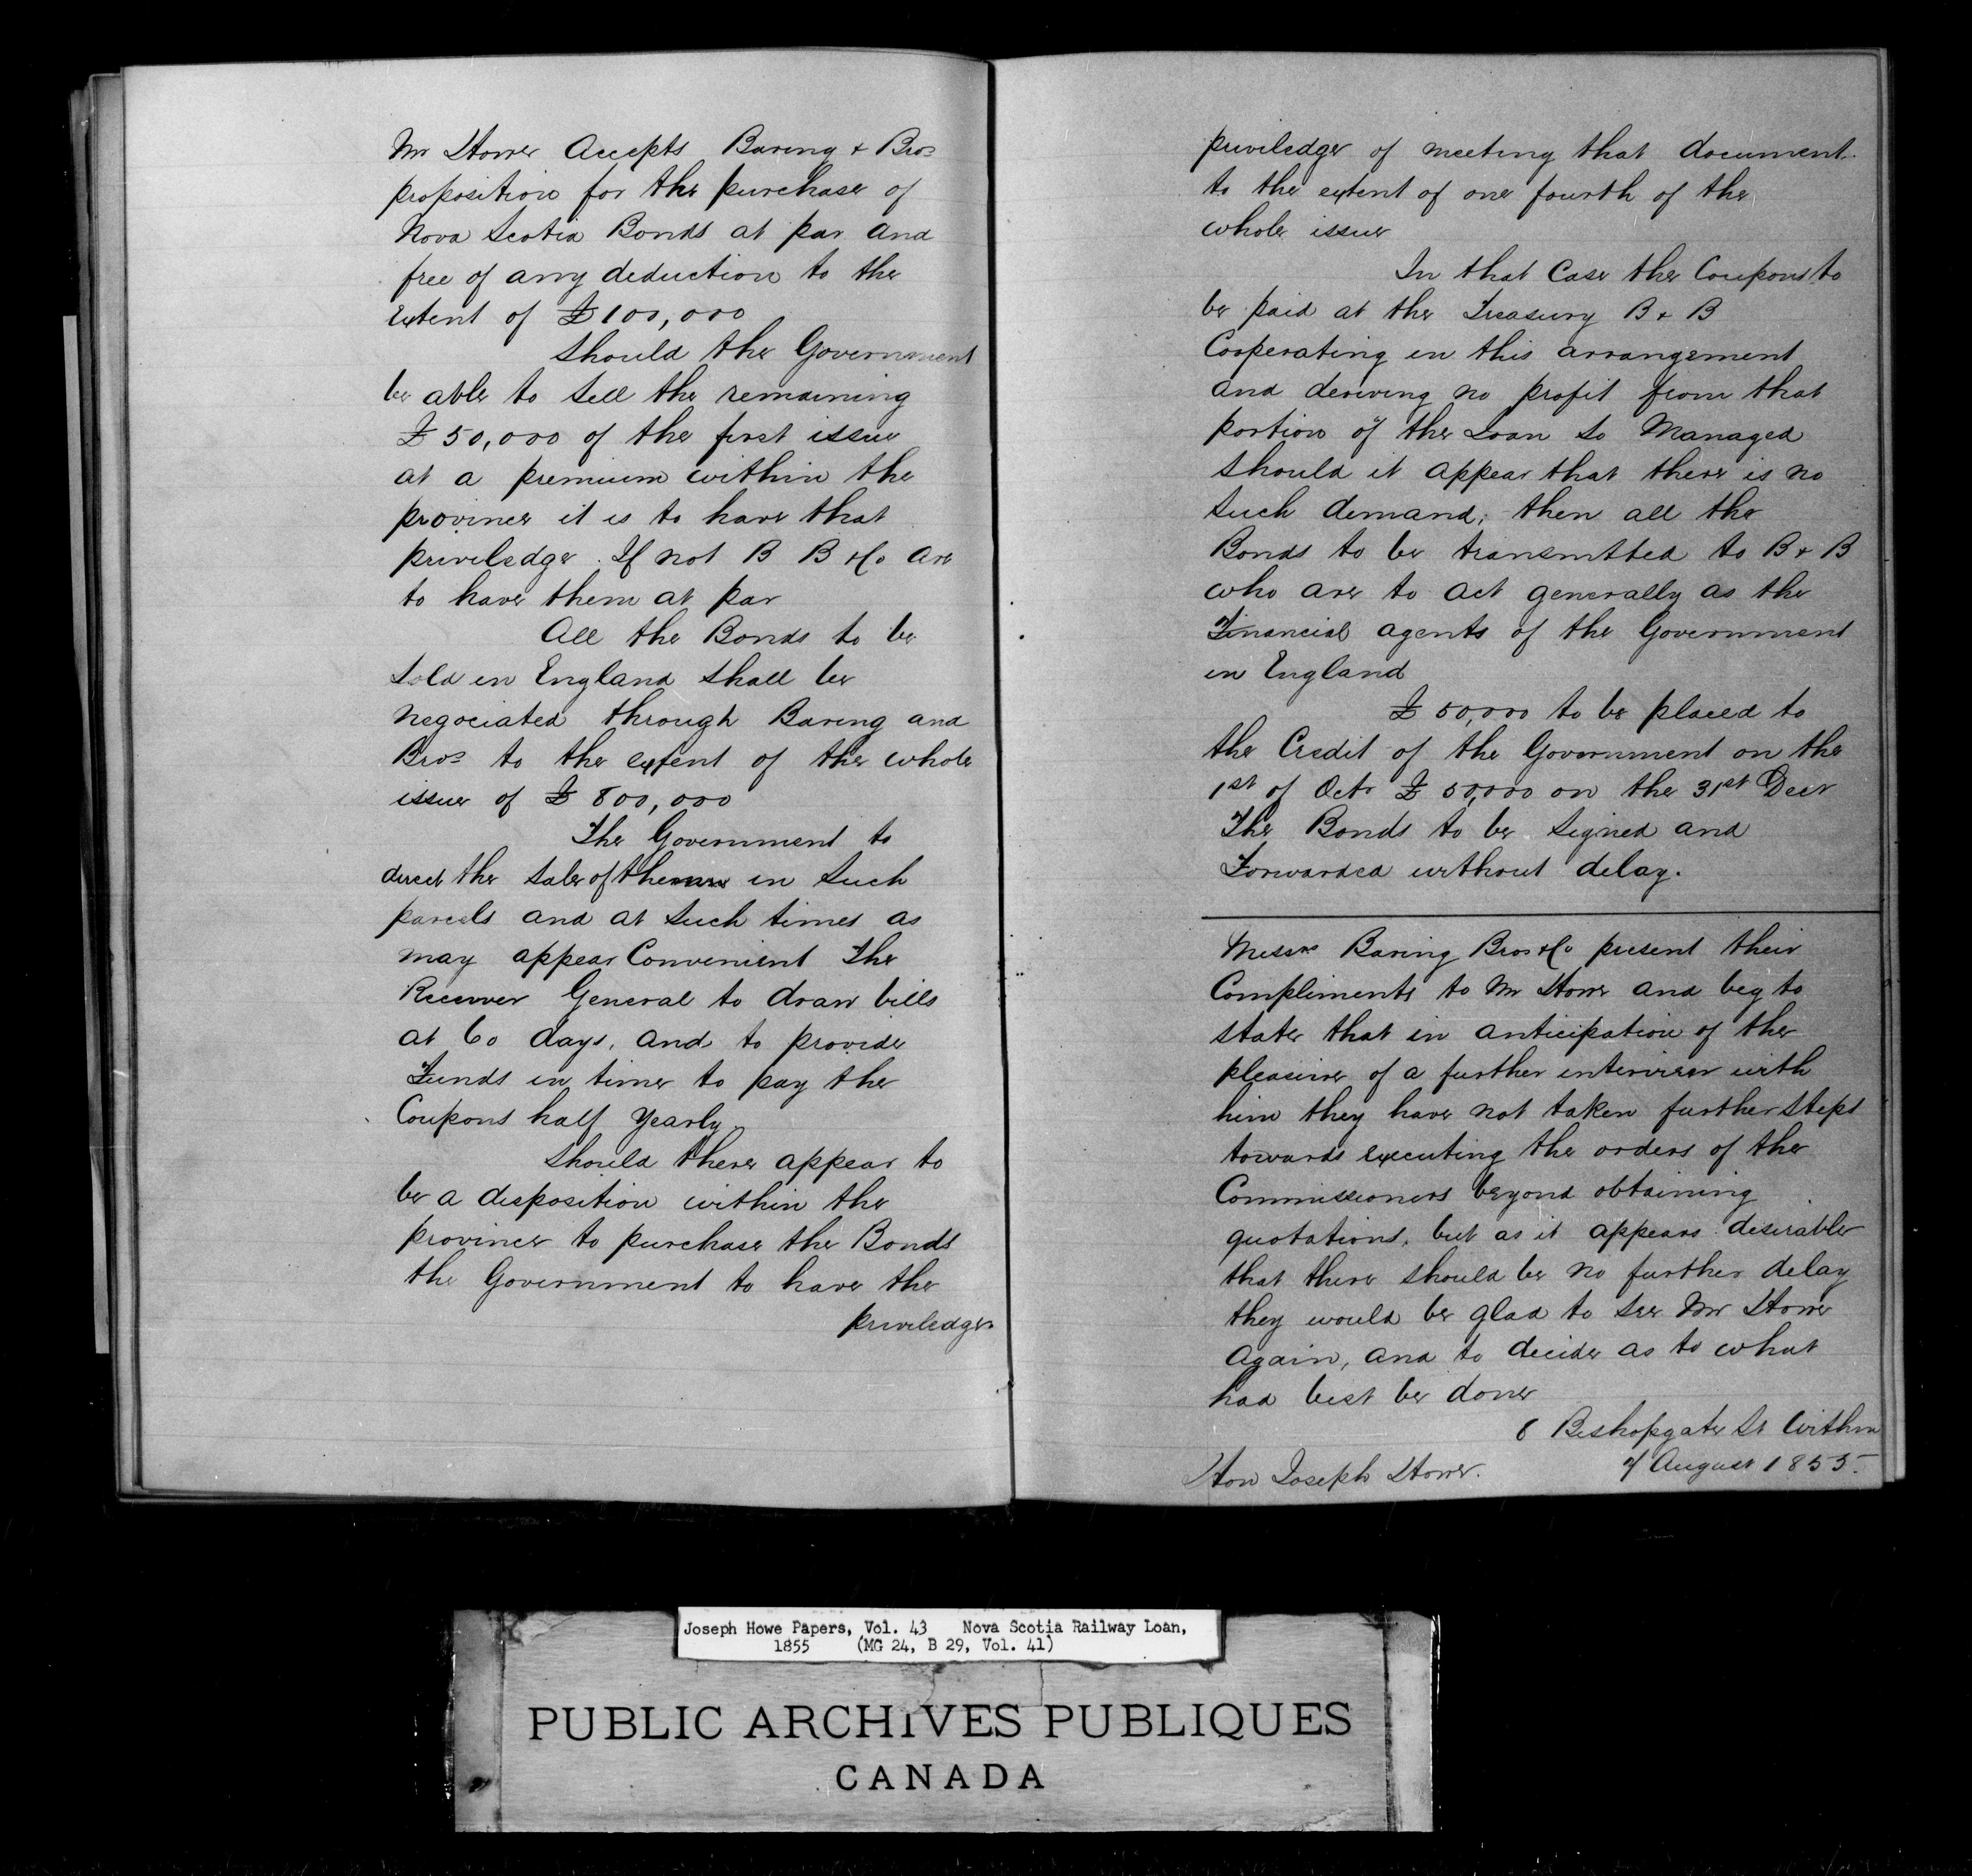 Mr Howe Accepts Baring & Bros
proposition for the purchase of
Nova Scotia Bonds at par and
free of any deduction to the
Extent of £100,000
Should the Government
be able to sell the remaining
£50,000 of the first issue
at a premium within the
province it is to have that
priviledge. If not B B & Co are
to have them at par
All the Bonds to be
Sold in England shall be
negociated through Baring and
Bros to the extent of the whole
issue of £800,000
The Government to
direct the Sale of them in Such
parcels and at Such times as
may appear Convenient The
Receiver General to draw bills
at 60 days, and to provide
Funds in time to pay the
Coupons half Yearly.
Should there appear to
be a disposition within the
province to purchase the Bonds
the Government to have the
priviledge
priviledge of meeting that document.
to the extent of one fourth of the
whole issue
In that Case the Coupons to
be paid at the Treasury B & B
Cooperating in this arrangement
and deriving no profit from that
portion of the Loan so Managed
Should it appear that there is no
Such demand; then all the
Bonds to be transmtted to B & B
who are to act generally as the
Financial agents of the Government
in England
£50,000 to be placed to
the Credit of the Government on the
1st of Octr £50,000 on the 31st Decr
The Bonds to be Signed and
Forwarded without delay.
Messrs Baring Bros & Co present their
Compliments to Mr Howe and beg to
state that in anticipation of the
pleasure of a further interview with
him they have not taken further Steps
towards executing the orders of the
Commissioners beyond obtaining
quotations, but as it appears desirable
that there should be no further delay
they would be glad to see Mr Howe
Again, and to decide as to what
had best be done
8 Bishopgate St Within
7 August 1855.
Hon Joseph Howe.
Joseph Howe Papers, Vol. 43 Nova Scotia Railway Loan,
1855 (MG 24, B 29, Vol. 41)
PUBLIC ARCHIVES PUBLIQUES
CANADA